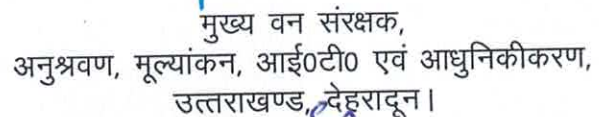 मुख्य वन संरक्षक,
अनुश्रवण, मूल्यांकन, आई0टी0 एवं आधुनिकीकरण,
उत्तराखण्ड, देहरादून।